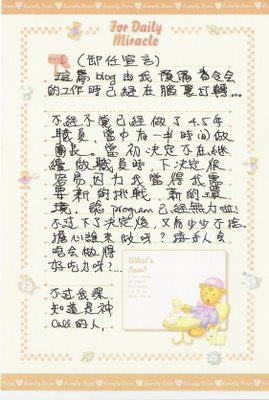 For Daily
Miracle
(卸任宣言)
這篇 blog 由我 預備
的工作時已經在腦裏打轉...
不經不覺已經做了 4.5年
職員, 當中有一半時間做
團長。當初決定不在繼
續做職員時,下決定很
容易因為我覺得我需
要新的挑戰,新的環
境。諗 program 已經無力啦!
不過下了決定後,又有少少不捨。
擔心誰來做呀? 人会
唔会做得
好吃力呀?...
不过我深
知道是神
Call的人,
What's
New?